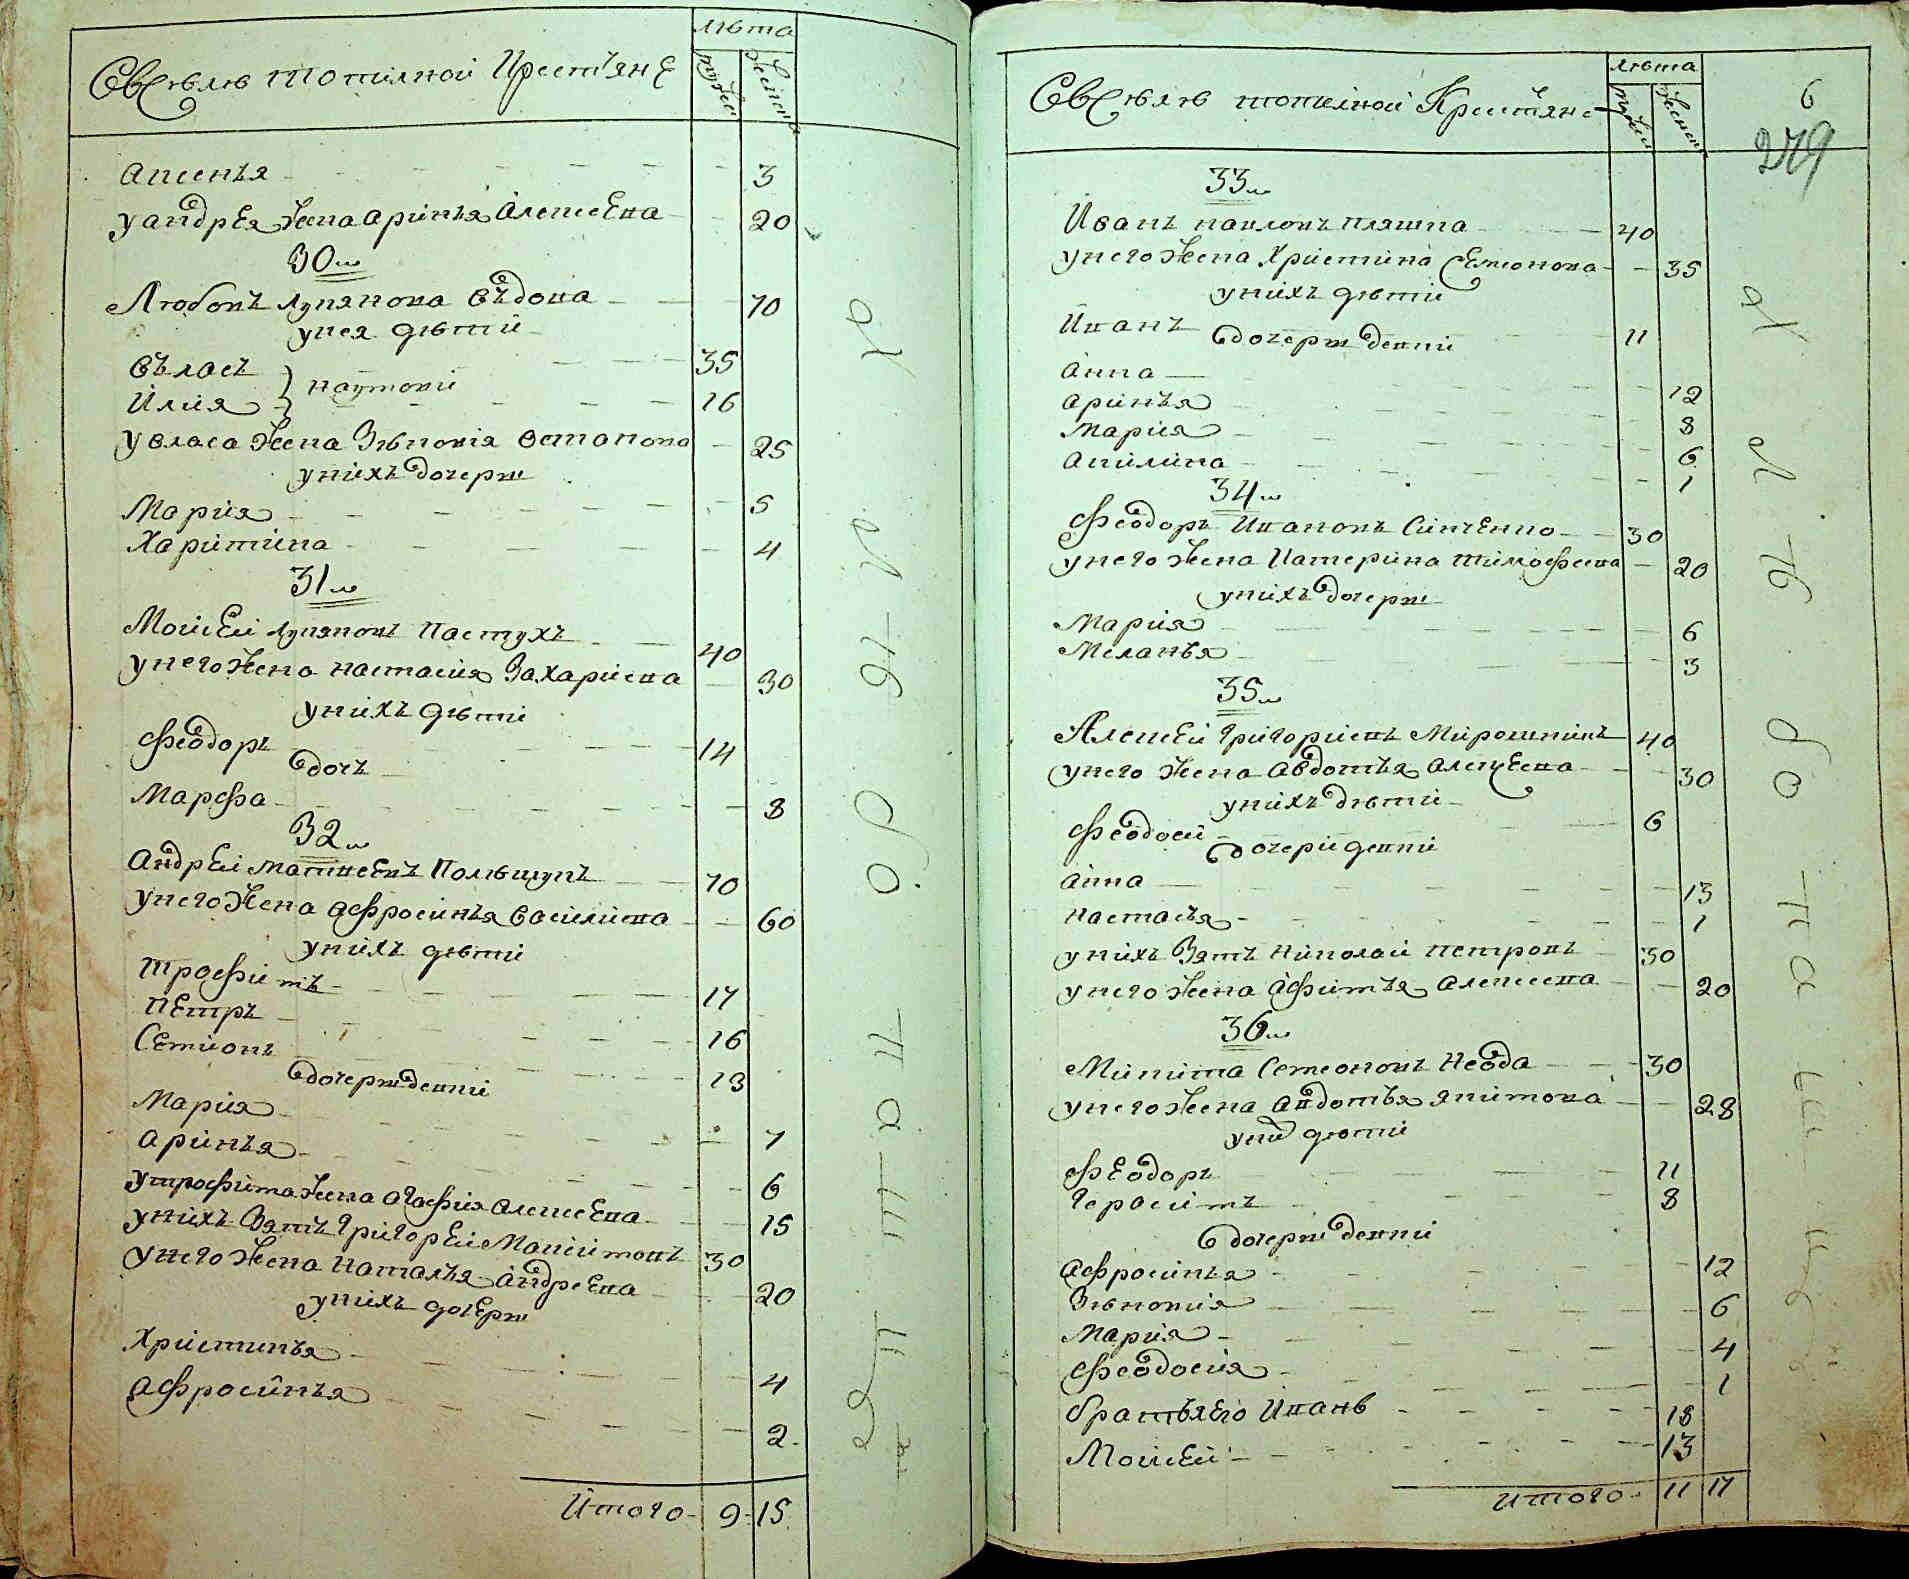 Въ Селѣ топилной Крестяне
лѣта
мужес
женска
Апсенья 3
у андрея жена аринья Алексеева 20
30
Любовь лукянова въдова 70
у нея дѣти
вълась 35
Илия 16
у власа жена Зѣновия остапова 25
у нихъ дочери
Мария 5
Харитина 4
31
Моисеи лукяновъ пастухъ 40
у него жена настасия Захариева 30
у нихъ дѣти
Феодоръ 14
дочь
Марфа 8
32
Андреи матвеевъ 70
у него жена афросинья василиева 60
у нихъ дѣти
трофимъ 17
петръ 16
Семионъ 13
дочери девки
Мария 7
аринья 6
у трофима жена агафия алексеева 15
у нихъ Зять григореи Максимовъ 30
у него жена наталья андреева 20
у нихъ дочери
Христинья 4
афросинья 2
Итого 9 15
Въ Селѣ топилной Крестяне
лѣта
мужес
женска
6
279
33
Иванъ павловъ пляшка 40
у него жена Христина Семионова 35
у нихъ дѣти
Иванъ 11
дочери девки
анна 12
аринья 8
мария 6
акилина 1
34
Феодоръ Ивановъ Синченко 30
у него жена Катерина тимофеева 20
у нихъ дочери
Мария 6
Меланья 3
35
Алексеи григориевъ Мирошникъ 40
у него жена авдотья алексеева 30
у нихъ дѣти
Феодосии 6
дочери девки
анна 13
настасья 1
у нихъ Зять николаи петровъ 30
у него жена афимья алексеева 20
36
Микита Семеоновъ неода 30
у него жена авдотья якимова 28
у них дѣти
Феодоръ 11
герасимъ 8
дочери девки
афросинья 12
Зѣновия 6
мария 4
Феодосия 1
братья его Иванъ 18
Моисеи 13
итого 11 17